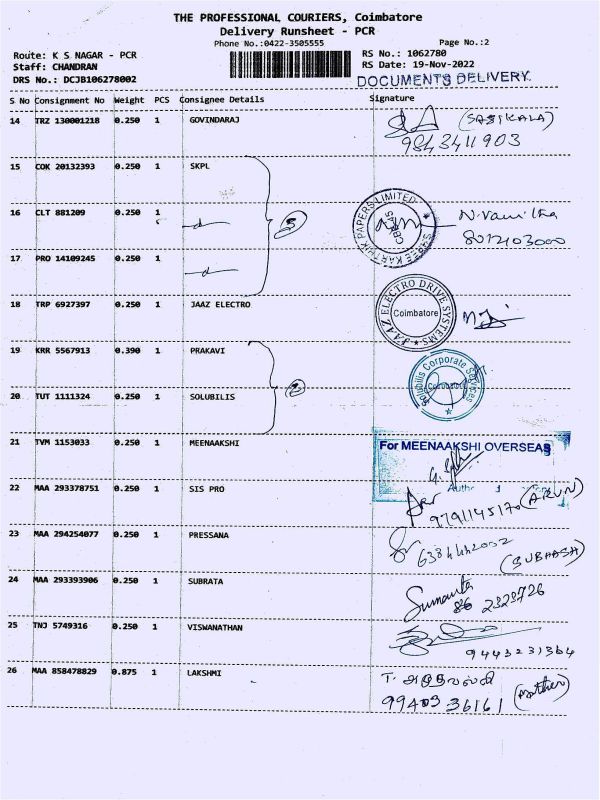 THE PROFESSIONAL COURIERS, Coimbatore
Delivery Runsheet - PCR
Phone No.:0422-3505555
Page No.:2
Route: K S NAGAR - PCR
RS No.: 1062780
Staff: CHANDRAN
RS Date: 19-Nov-2022
DRS No.: DCJB106278002
DOCUMENTS DELIVERY.
S No Consignment No Weight PCS Consignee Details Signature
14 TRZ 130001218 0.250 1 GOVINDARAJ
(SASIKALA)
9843411903
15 COK 20132393 0.250 1 SKPL
16 CLT 881209 0.250 1
SHREE KARTHIK PAPERS LIMITED
CBE
8012103000
17 PRO 14109245 0.250 1
18 TRP 6927397 0.250 1 JAAZ ELECTRO
JAAZ ELECTRO DRIVE SYSTEMS
Coimbatore
19 KRR 5567913 0.390 1 PRAKAVI
Solubilis Corporate Services
Coimbatore
20 TUT 1111324 0.250 1 SOLUBILIS
21 TVM 1153033 0.250 1 MEENAAKSHI
For MEENAAKSHI OVERSEAS
22 MAA 293378751 0.250 1 SIS PRO
(ARUN)
9791145170
23 MAA 294254077 0.250 1 PRESSANA
(SUBHASH)
24 MAA 293393906 0.250 1 SUBRATA
2323726
25 TNJ 5749316 0.250 1 VISWANATHAN
9443231364
26 MAA 858478829 0.875 1 LAKSHMI
(Mother)
9940336161